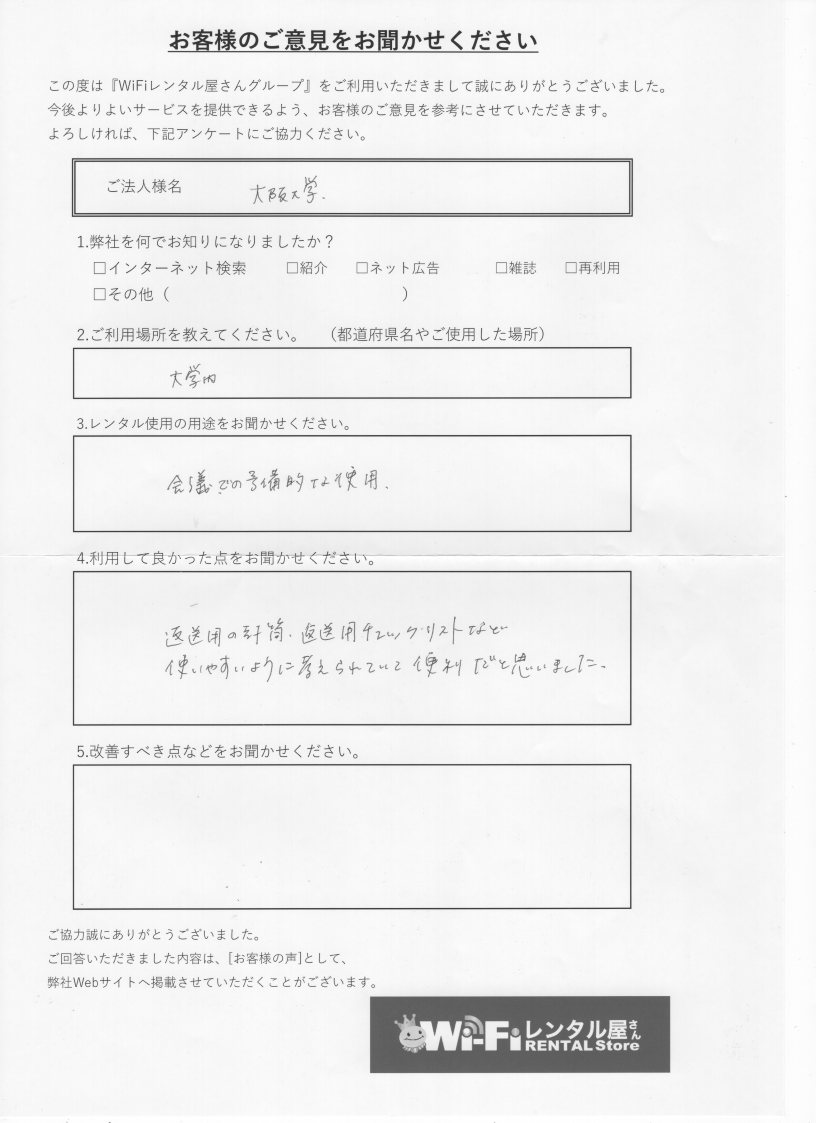 お客様のご意見をお聞かせください
この度は『WiFiレンタル屋さんグループ』をご利用いただきまして誠にありがとうございました。
今後よりよいサービスを提供できるよう、お客様のご意見を参考にさせていただきます。
よろしければ、下記アンケートにご協力ください。
ご法人様名 大阪大学.
1.弊社を何でお知りになりましたか？
□インターネット検索 □紹介 □ネット広告 □雑誌 □再利用
□その他（ ）
2.ご利用場所を教えてください。 （都道府県名やご使用した場所）
大学内
3.レンタル使用の用途をお聞かせください。
会議での予備的な使用.
4.利用して良かった点をお聞かせください。
返送用の封筒、返送用チェックリストなど
使いやすいように考えられていて便利だと思いました。
5.改善すべき点などをお聞かせください。
ご協力誠にありがとうございました。
ご回答いただきました内容は、[お客様の声]として、
弊社Webサイトへ掲載させていただくことがございます。
Wi-Fiレンタル屋さん
RENTAL Store